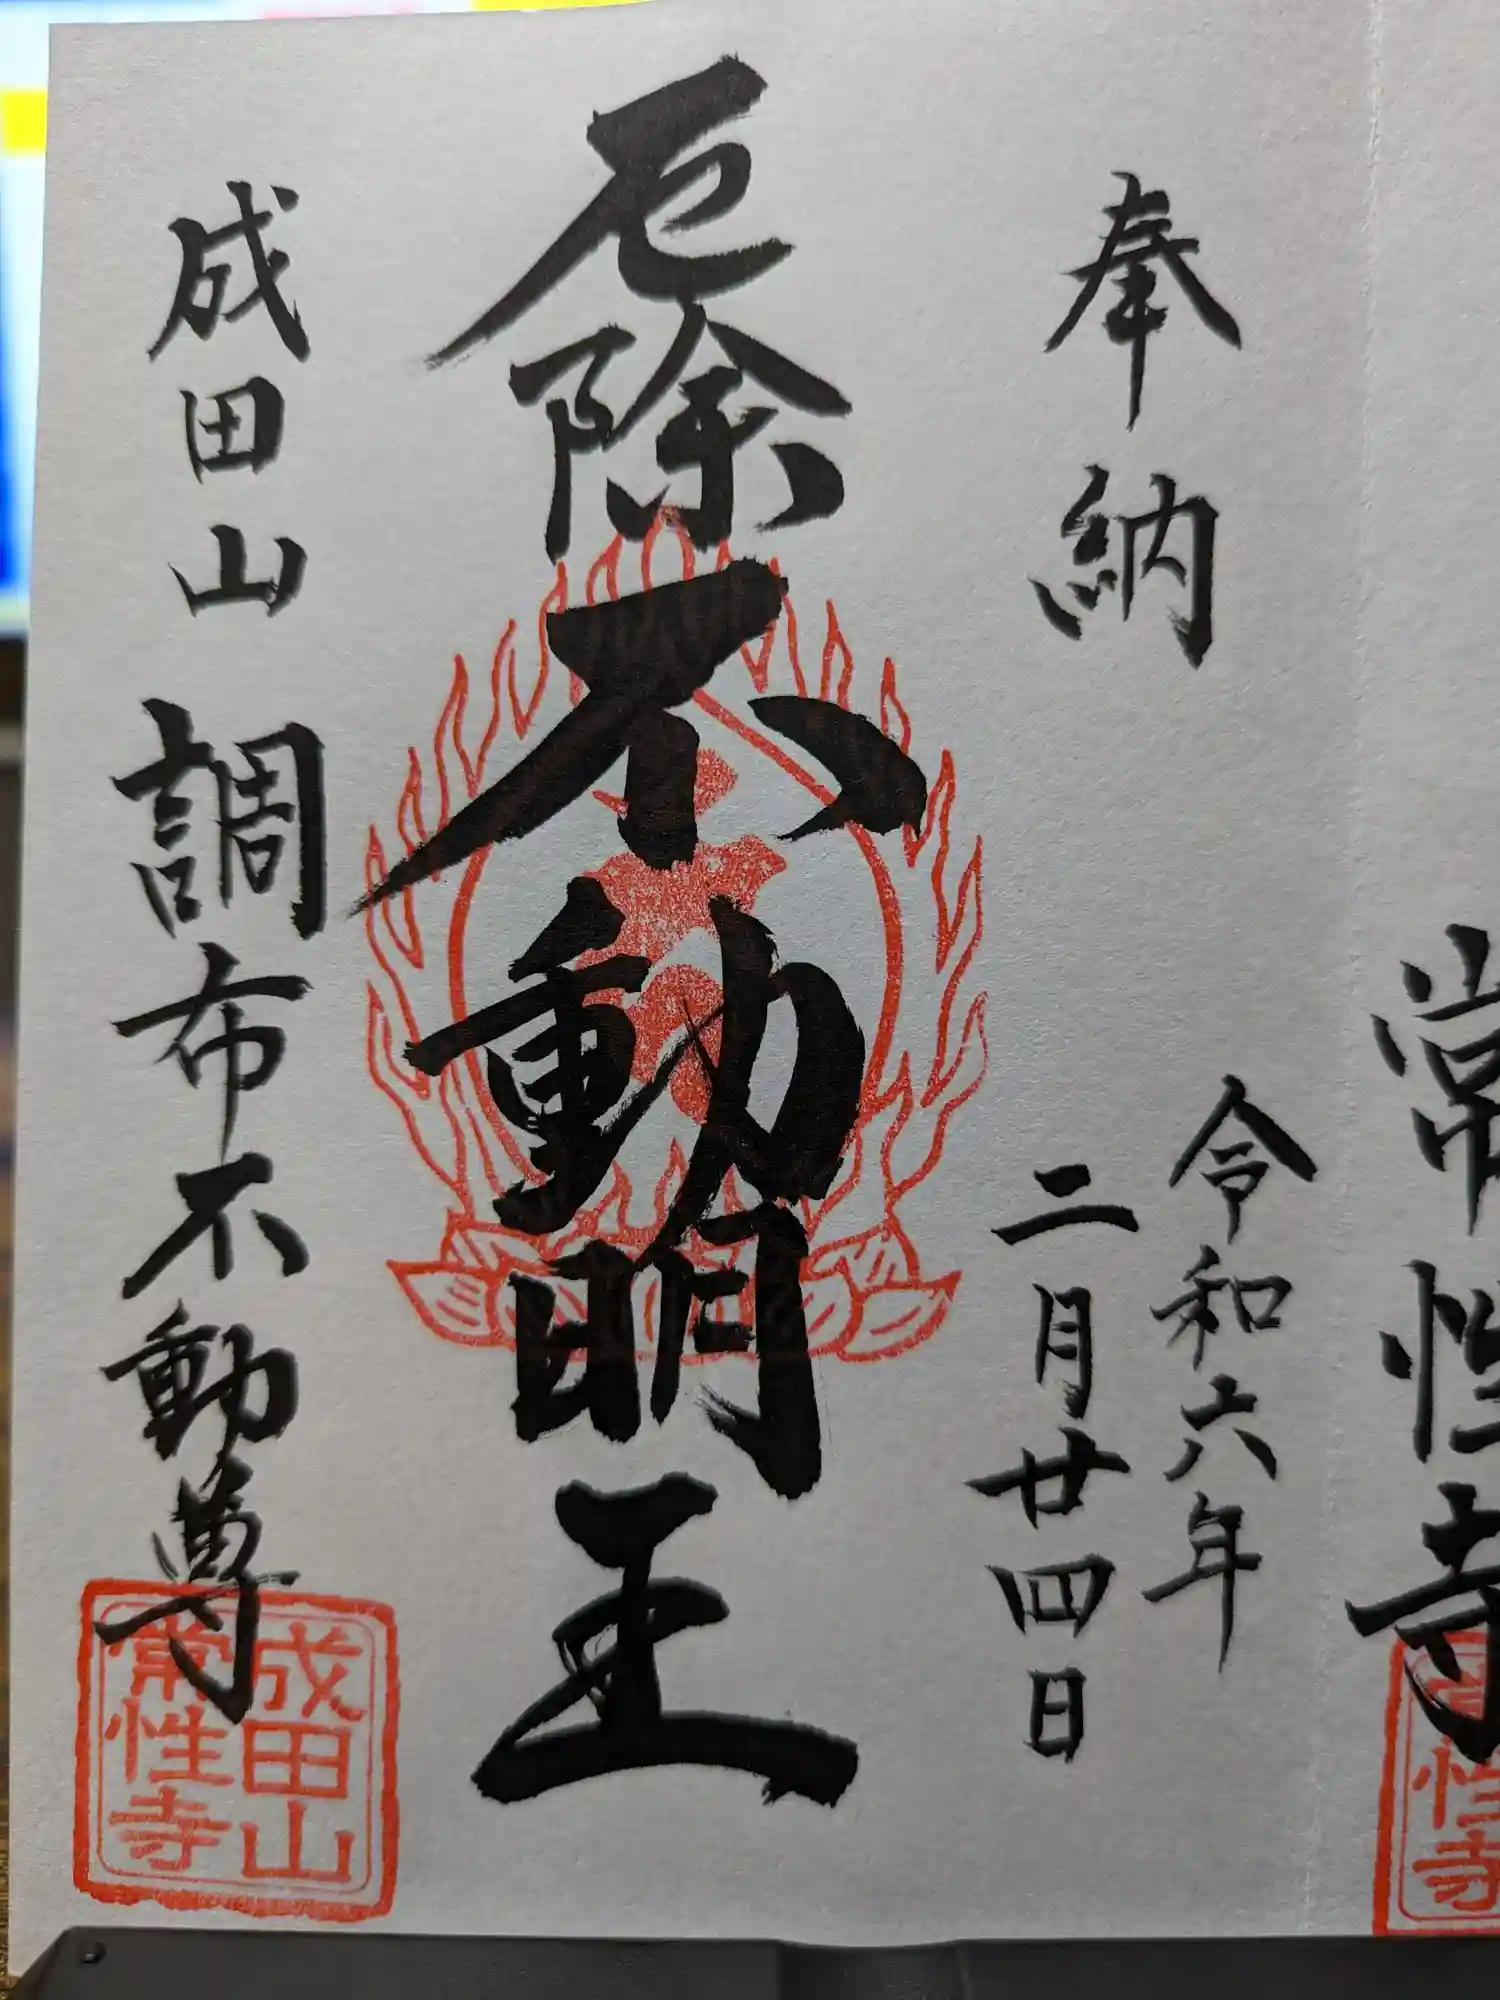 常性寺
常性寺
奉納
令和六年
二月廿四日
厄除不動明王
成田山 調布不動尊
成田山
常性寺